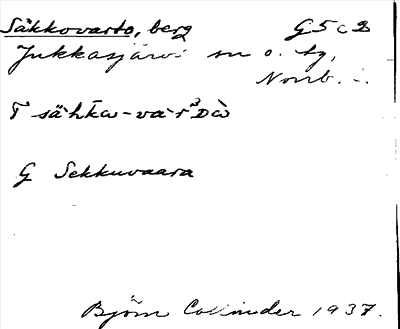 Säkkovarto, berg G5c2
Jukkasjärvi sn o. tg,
Norrb. l.
T sä̀ht̄ka-va·rᵌDà
G Sekkuvaara
Björn Collinder 1937.